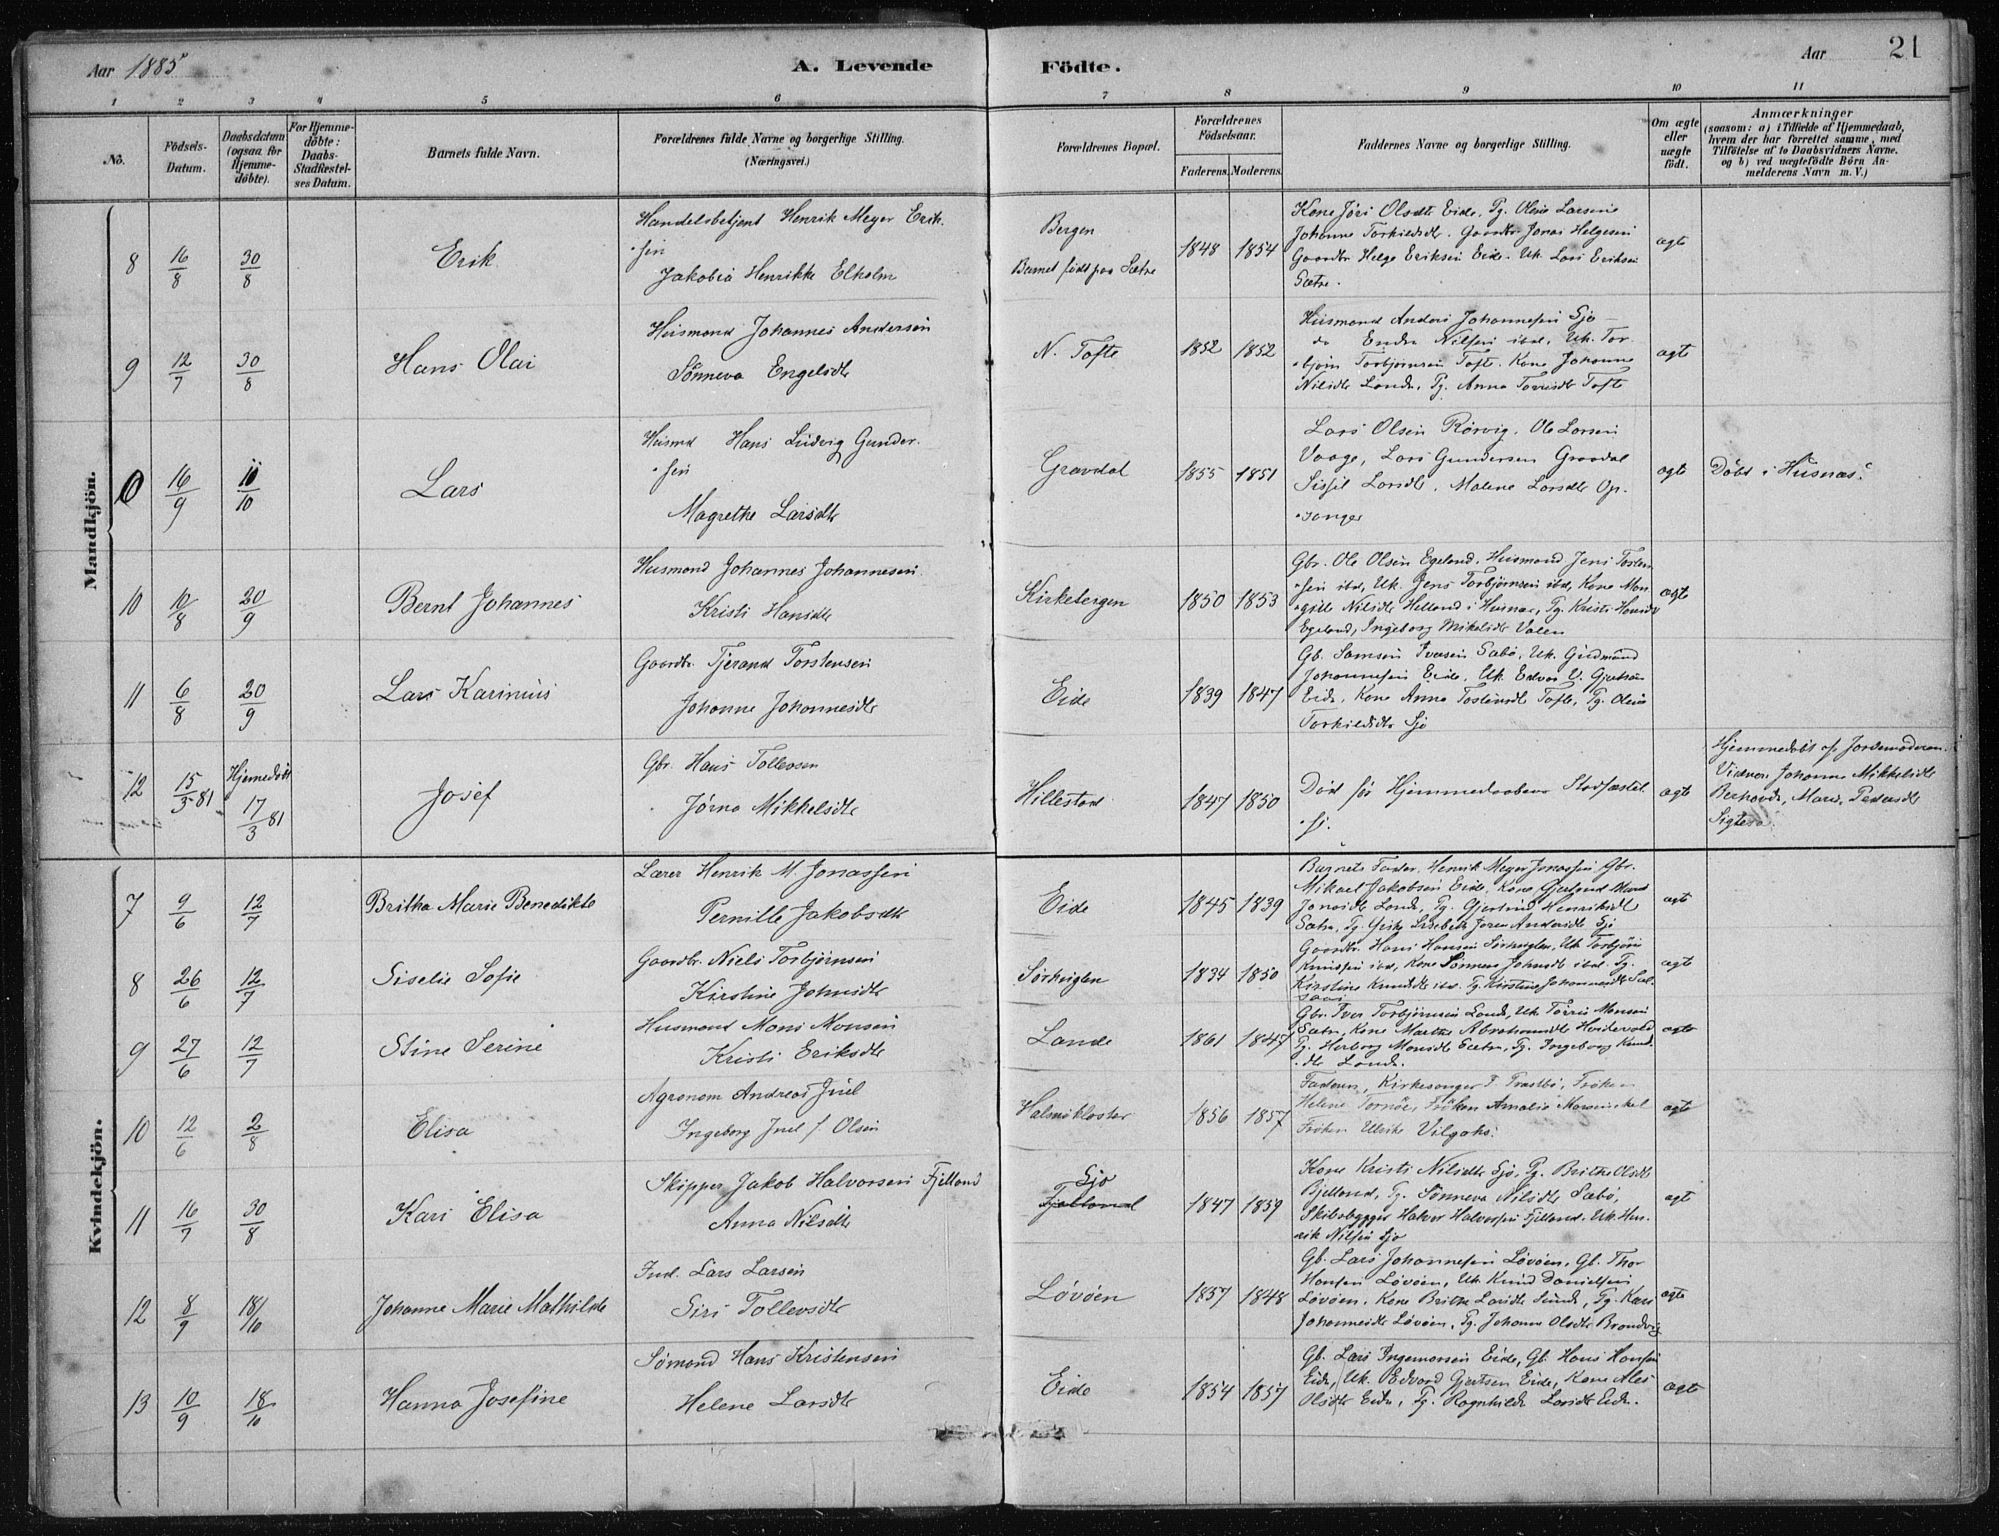 Aar 1885
A. Levende
Födte.
Aar
21
1 2 3 4 5 6 7 8 9 10 11
No.
Födsels-
Datum.
Daabsdatum
(ogsaa for
Hjemme-
døbte).
For Hjemme-
døbte:
Daabs-
Stadfæstel-
ses Datum.
Barnets fulde Navn.
Forældrenes fulde Navne og borgerlige Stilling.
(Næringsvei.)
Forældrenes Bopæl.
Forældrenes
Födselsaar.
Faderens.
Moderens.
Faddernes Navne og borgerlige Stilling.
Om ægte
eller
uægte
født.
Anmærkninger
(saasom: a) i Tilfælde af Hjemmedaab,
hvem der har forrettet samme, med
Tilföielse af to Daabsvidners Navne.
og b) ved uægtefödte Börn An-
melderens Navn m. V.)
Mandkjön.
8 16/8 30/8 Erik
Handelsbetjent Henrik Meyer Erik-
sen
Jakobia Henrikke Elholm
Bergen
Barnet født paa Sætre
1848 1854
Kone Jøri Olsdtr Eide, Pg. Oline Larsine
Johanne Torkildsdtr. Gaardbr Jonas Helgesen
Gaardbr Helge Eriksen Eide. Uk. Lars Eriksen
Sætre.
ægte
9 12/7 30/8 Hans Olai
Husmand Johannes Andersen
Sønneva Engelsdtr
N. Tofte
1852 1852
Husmand Anders Johannesen Sjo
do Endre Nilsen ibid, Uk. Tor-
bjørn Torbjørnsen Tofte. Kone Johanne
Nilsdtr Lande, Pg. Anna Tørrisdtr Tofte
ægte
0 16/9 11/10 Lars
Husmd Hans Ludvig Gunder-
sen
Magrethe Larsdtr
Gravdal
1855 1851
Lars Olsen Rørvig, Ole Larsen
Vaage, Lars Gundersen Gravdal
Sissil Larsdtr, Malene Larsdtr Op-
sanger
ægte
Døbt i Husnæs.
10 10/8 20/9 Bernt Johannes
Husmand Johannes Johannesen
Kristi Hansdtr
Kirkebergen
1850 1853
Gbr. Ole Olsen Egeland, Husmand Jens Torsten-
sen ibid, Uk. Jens Torbjørnsen ibid, Kone Mar-
grete Nilsdtr Helland i Husnæs, Pg. Kristi Hansdtr
Egeland, Ingeborg Mikelsdtr Valen
ægte
11 6/8 20/9 Lars Karinius
Gaardbr. Tjerand Torstensen
Johanne Johannesdtr
Eide
1839 1847
Gb. Samson Iversen Sæbø, Uk. Gudmund
Johannesen Eide, Uk Edvard Gjertsen
Eide, Kone Anna Tostensdtr Tofte, Pg. Oline
Torkildsdtr Sjo
12 15/3 81 Hjemmedøbt 17/3 81 Josef
Gbr. Hans Tollevsen
Jørna Mikkelsdtr
Hillestad
1847 1850
Død før Hjemmedaabens Stadfæstel-
se.
ægte
Hjemmedøbt af Jordemoderen.
Vidner Johanne Mikkelsdtr
Berhovde, Marie Pedersdtr
Sigtesø.
Kvindekjön.
7 9/6 12/7 Britha Marie Benedikte
Lærer Henrik M. Jonassen
Pernille Jakobsdtr
Eide
1845 1839
Barnets Fader, Henrik Meyer Jonassen Gbr.
Mikael Jakobsen Eide, Kone Gjertrud
Jonasdtr Lande, Pg. Gjertrud Henriksdtr
Sætre, Pg. Giske Lisebeth Joren Andersdtr Sjo
ægte
8 26/6 12/7 Siselie Sofie
Gaardbr. Niels Torbjørnsen
Kirstine Johnsdtr
Sørhuglen
1834 1850
Gaardbr. Hans Hansen Sørhuglen, Uk Torbjørn
Knutsen ibid, Kone Sønneva Johnsdtr ibid. Pg.
Kirstine Knutsdtr ibid. Pg. Kirstine Johannesdtr
ægt
9 27/6 12/7 Stine Serine
Husmand Mons Monsen
Kristi Eriksdtr
Lande
1861 1847
Gbr. Iver Torbjørnsen Lande, Uk Tørris Monsen
Sætre, Kone Marthe Abrahamsdtr
Pg. Herborg Monsdtr Sætre, Pg. Ingeborg Knuds-
dtr Lande.
ægte
10 12/6 2/8 Elisa
Agronom Andreas Juel
Ingeborg Juel f. Olsen
Halsnøkloster
1856 1857
Faderen, Kirkesanger P. Trættebø, Frøken
Helene Tornøe, Frøken Amalie
Frøken Ulrikke
ægt
11 16/7 30/8 Kari Elisa
Skipper Jakob Halvorsen Fjelland
Anna Nilsdtr
Sjo
Fjelland
1847 1859
Kone Kristi Nilsdtr Sjo, Pg. Brithe Olsdtr
Bjelland, Pg. Sønneva Nilsdtr Sæbø,
Skibsbygger Halvor Halvorsen Fjelland. Uk. Hen-
rik Nilsen Sjo
ægt
12 8/9 18/10 Johanne Marie Mathilde
Ind. Lars Larsen
Siri Tollevsdtr
Løvøen
1857 1848
Gb. Lars Johannesen Løvøen, Gb. Thor
Hansen Løvøen, Uk Knud Danielsen
Løvøen. Kone Brithe Larsdtr Sunde, Pg. Kari
Johannesdtr Løvøen, Pg. Johanne Olsdtr Brandvig
ægte
13 10/9 18/10 Hanna Josefine
Sømand Hans Kristensen
Helene Larsdtr
Eide
1854 1857
Gb. Lars Ingemarsen Eide, Gb. Hans Hansen
Eide, Uk. Edvard Gjertsen Eide, Kone Ales
Olsdtr Eide, Pg. Ragnhilde Larsdtr Eide.
ægt